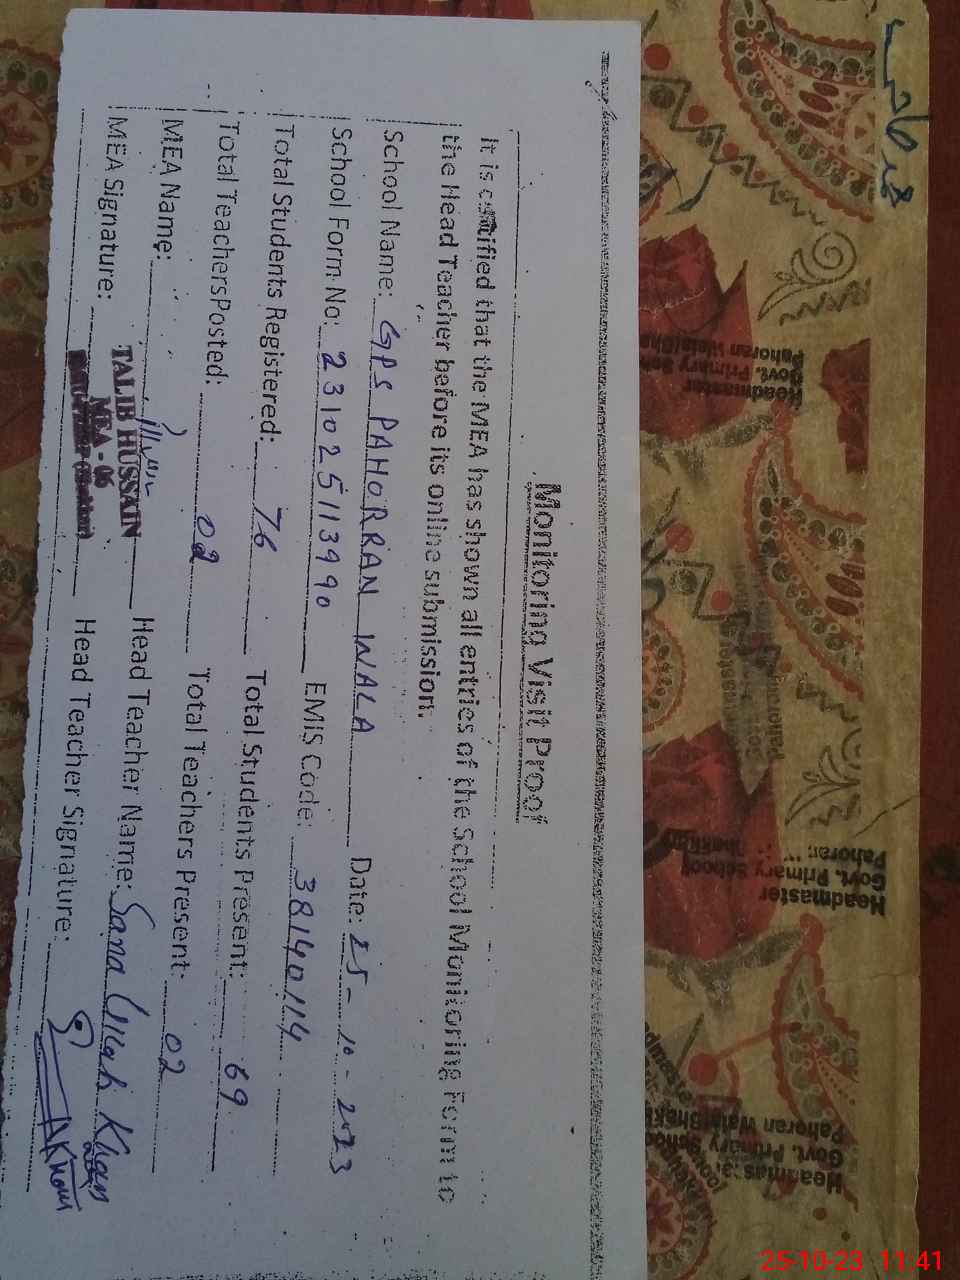 Monitoring Visit Proof
It is certified that the MEA has shown all entries of the School Monitoring Form to
the Head Teacher before its online submission.
School Name: GPS PAHORRAN WALA Date: 25-10-2023
School Form No: 231025113990 EMIS Code: 38140114
Total Students Registered: 76 Total Students Present: 69
Total Teachers Posted: 02 Total Teachers Present: 02
MEA Name: TALIB HUSSAIN Head Teacher Name: Sana Ullah Khan
MEA Signature: MEA - 06 Head Teacher Signature:
Headmaster
Govt. Primary Sch
Pahoran Wala(Bha
Headmaster
Govt. Primary School
Pahoran
Bhakkar
Headmaster
Govt. Primary School
Pahoran Wala(Bhakk
25-10-23 11:41